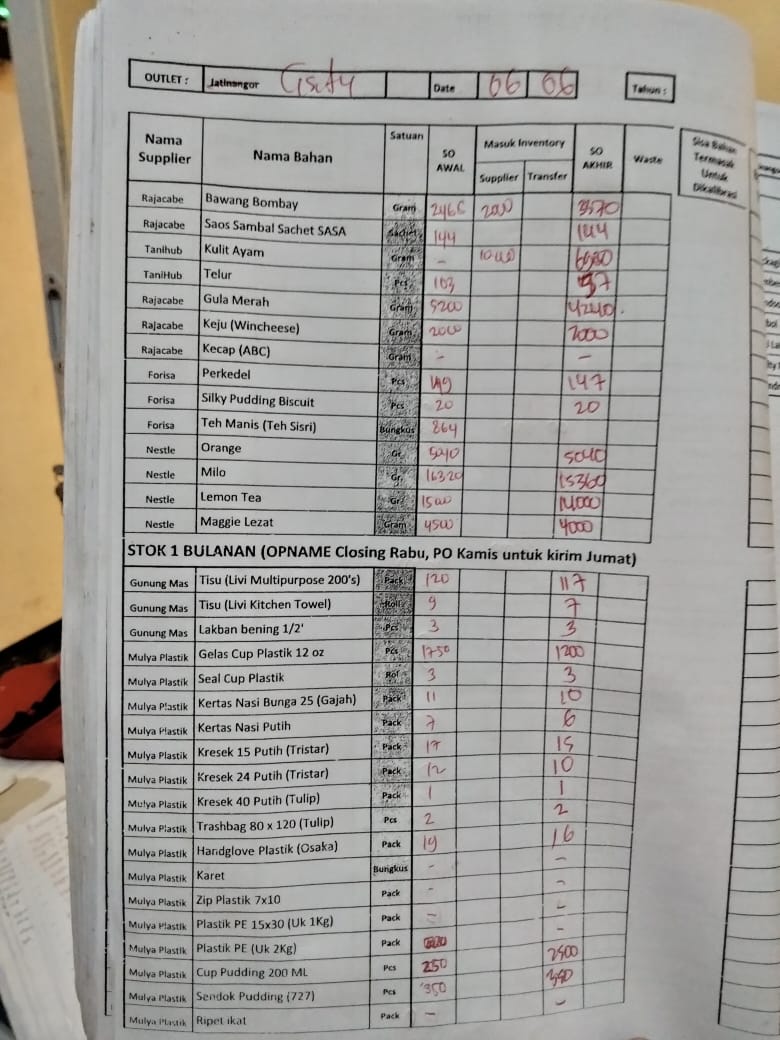 OUTLET : Jatinangor Date 06 06 Tahun :
Nama Supplier Nama Bahan Satuan SO AWAL Masuk Inventory Supplier Transfer SO AKHIR Waste Sisa Bahan Termasak Untuk Dikalibrasi
Rajacabe Bawang Bombay Gram 2465 2000 3570
Rajacabe Saos Sambal Sachet SASA Sachet 144 144
Tanihub Kulit Ayam Gram -
TaniHub Telur Pcs 103 97
Rajacabe Gula Merah Gram 5200 4240
Rajacabe Keju (Wincheese) Gram 2000 2000
Rajacabe Kecap (ABC) Gram - -
Forisa Perkedel Pcs 149 147
Forisa Silky Pudding Biscuit Pcs 20 20
Forisa Teh Manis (Teh Sisri) Bungkus 864
Nestle Orange Gr 5040 5040
Nestle Milo Gr 16320 15360
Nestle Lemon Tea Gr 1500 14000
Nestle Maggie Lezat Gram 4500 4000
STOK 1 BULANAN (OPNAME Closing Rabu, PO Kamis untuk kirim Jumat)
Gunung Mas Tisu (Livi Multipurpose 200's) Pack 120 117
Gunung Mas Tisu (Livi Kitchen Towel) Roll 9 7
Gunung Mas Lakban bening 1/2' Pcs 3 3
Mulya Plastik Gelas Cup Plastik 12 oz Pcs 1750 1200
Mulya Plastik Seal Cup Plastik Rol 3 3
Mulya Plastik Kertas Nasi Bunga 25 (Gajah) Pack 11 10
Mulya Plastik Kertas Nasi Putih Pack 7 6
Mulya Plastik Kresek 15 Putih (Tristar) Pack 17 15
Mulya Plastik Kresek 24 Putih (Tristar) Pack 12 10
Mulya Plastik Kresek 40 Putih (Tulip) Pack 1 1
Mulya Plastik Trashbag 80 x 120 (Tulip) Pcs 2 2
Mulya Plastik Handglove Plastik (Osaka) Pack 19 16
Mulya Plastik Karet Bungkus - -
Mulya Plastik Zip Plastik 7x10 Pack - -
Mulya Plastik Plastik PE 15x30 (Uk 1Kg) Pack - -
Mulya Plastik Plastik PE (Uk 2Kg) Pack -
Mulya Plastik Cup Pudding 200 ML Pcs 250 2500
Mulya Plastik Sendok Pudding (727) Pcs 350
Mulya Plastik Ripet ikat Pack - -